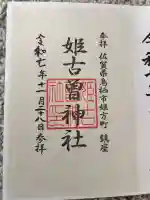 参拝 佐賀県鳥栖市姫方町 鎮座
姫古曽神社
令和七年十一月二十八日参拝